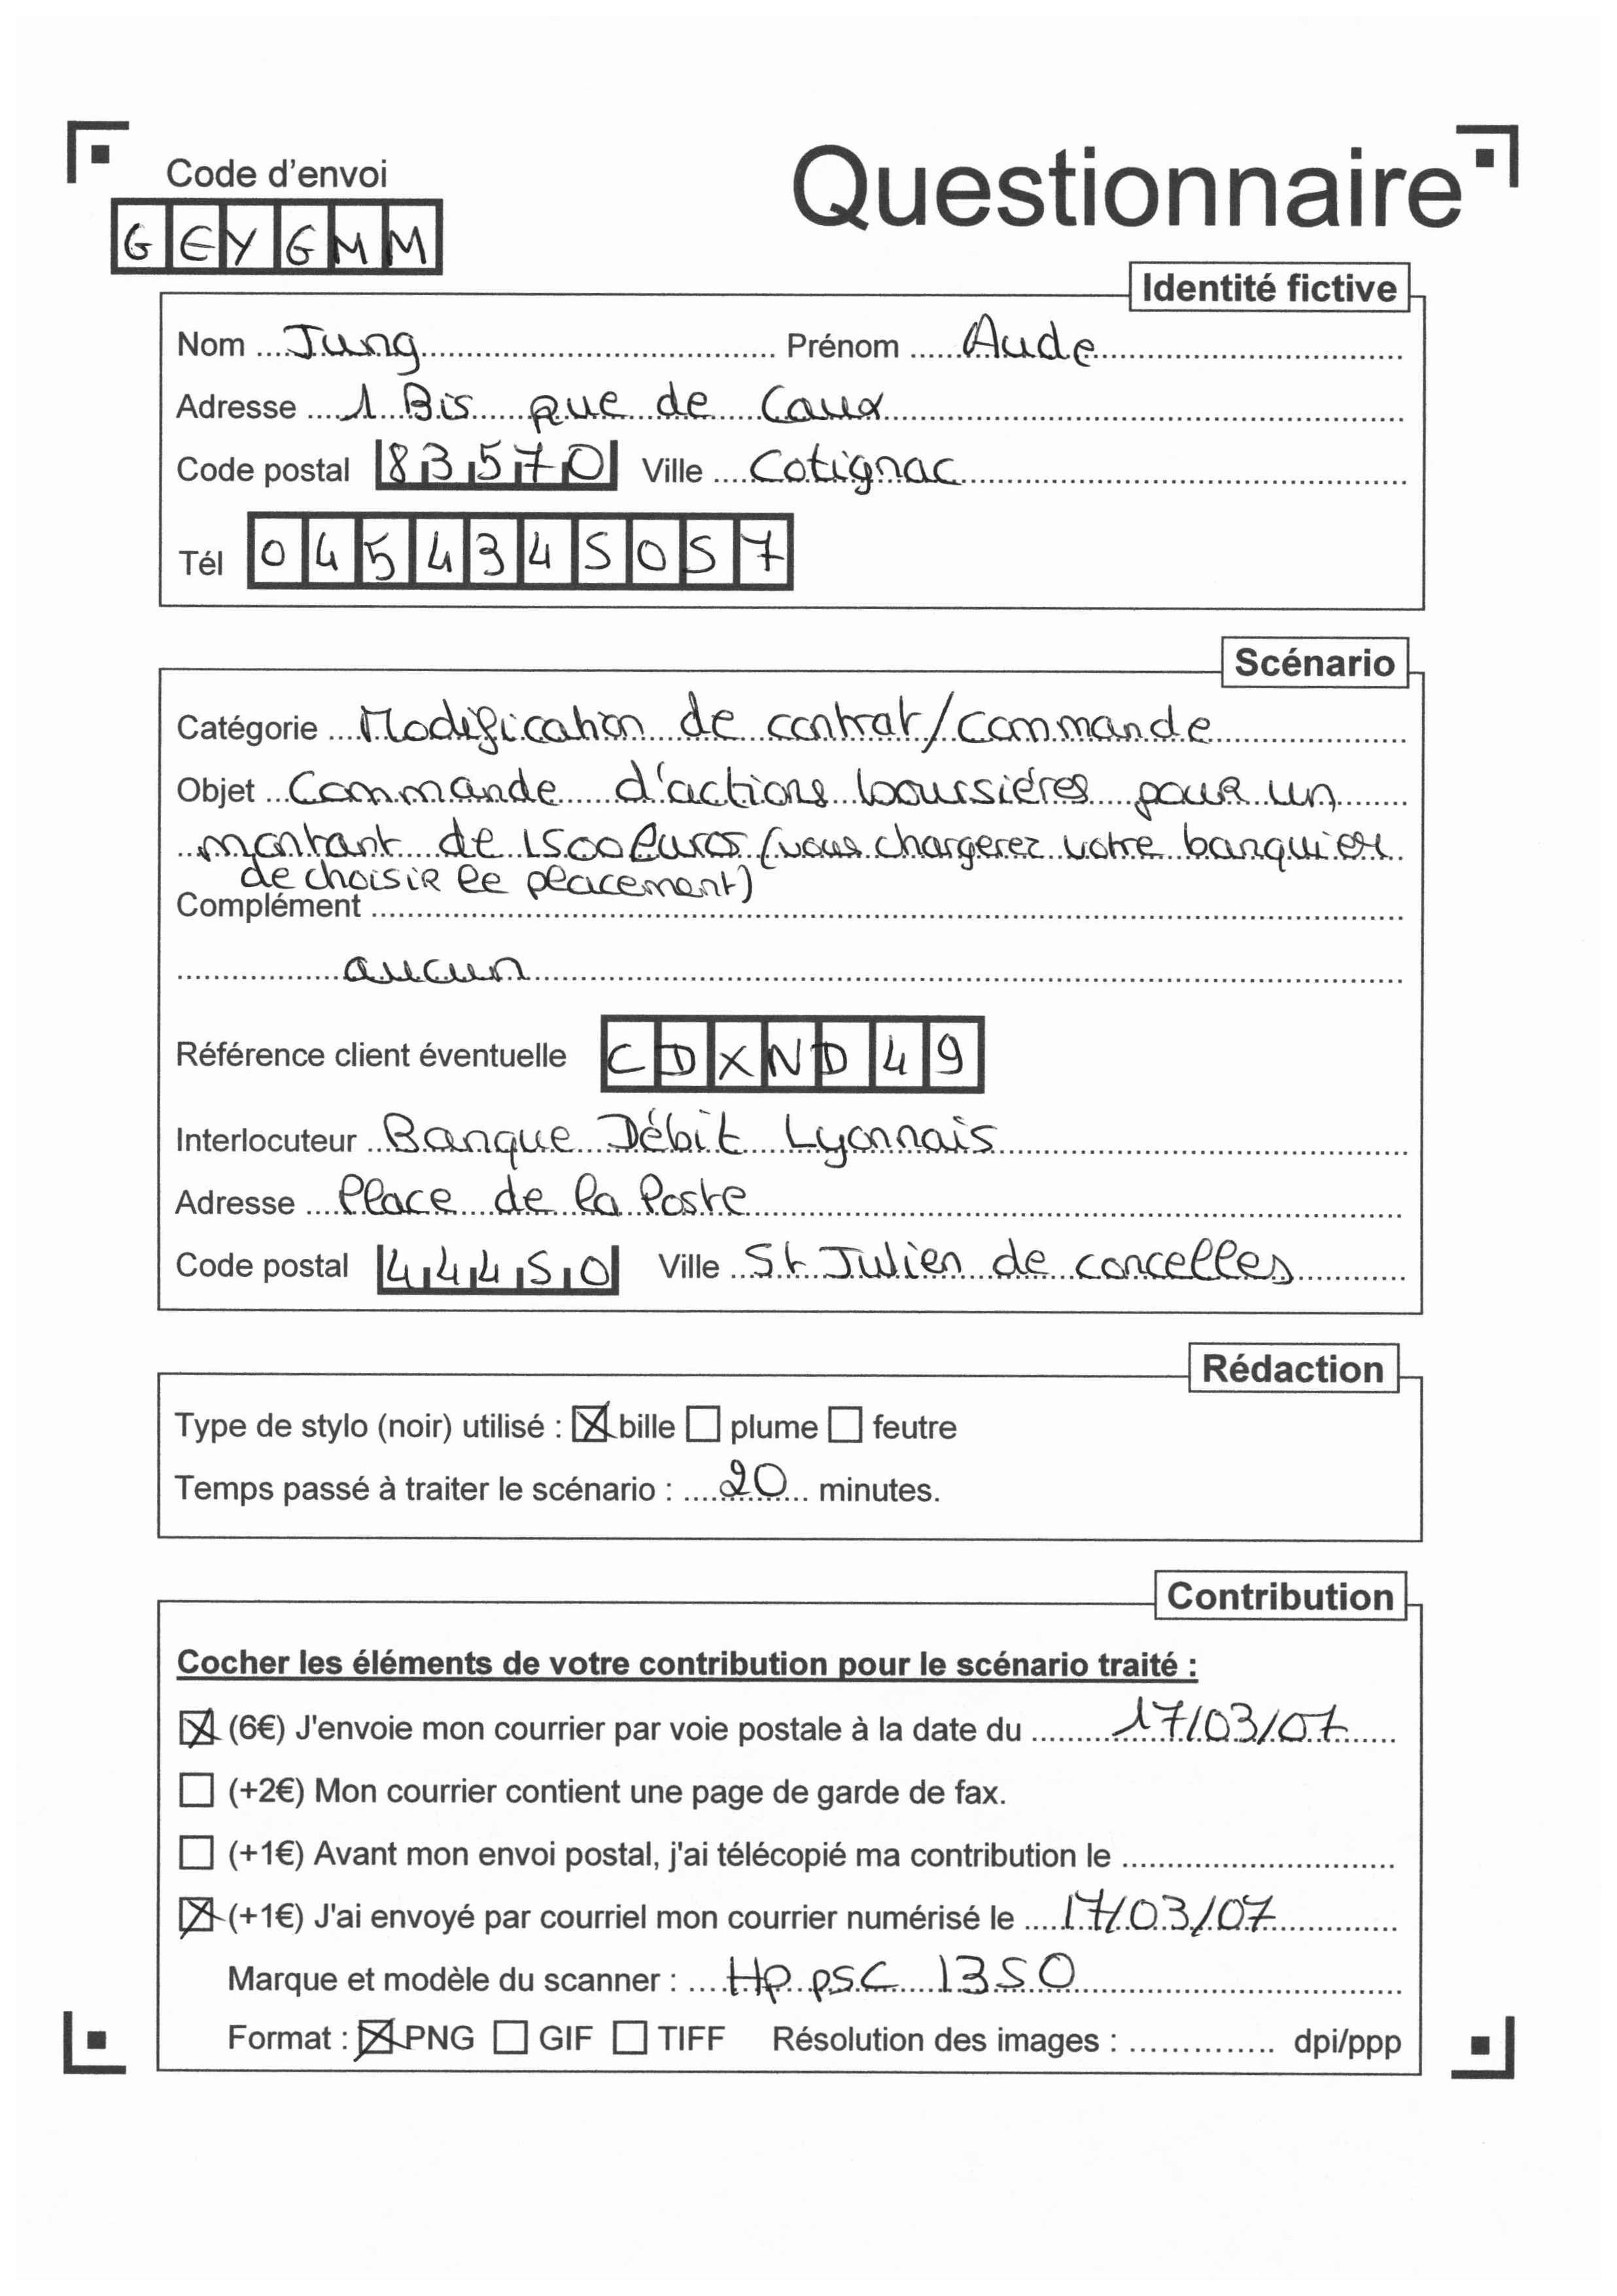 Code d'envoi
Questionnaire
GEYGMM
Identité fictive
Nom Jung Prénom Aude
Adresse 1 Bis rue de Caux
Code postal 83570 Ville Cotignac
Tél 0454345057
Scénario
Catégorie Modification de contrat/commande
Objet Commande d'actions boursières pour un
montant de 1500 Euros (vous chargerez votre banquier
de choisir le placement)
Complément
aucun
Référence client éventuelle CDXND49
Interlocuteur Banque Débit Lyonnais
Adresse Place de la Poste
Code postal 44450 Ville St Julien de concelles
Rédaction
Type de stylo (noir) utilisé : ☒ bille ☐ plume ☐ feutre
Temps passé à traiter le scénario : 20 minutes.
Contribution
Cocher les éléments de votre contribution pour le scénario traité :
☒ (6€) J'envoie mon courrier par voie postale à la date du 17/03/07
☐ (+2€) Mon courrier contient une page de garde de fax.
☐ (+1€) Avant mon envoi postal, j'ai télécopié ma contribution le
☒ (+1€) J'ai envoyé par courriel mon courrier numérisé le 17/03/07
Marque et modèle du scanner : Hp psc 1350
Format : ☒ PNG ☐ GIF ☐ TIFF Résolution des images : dpi/ppp